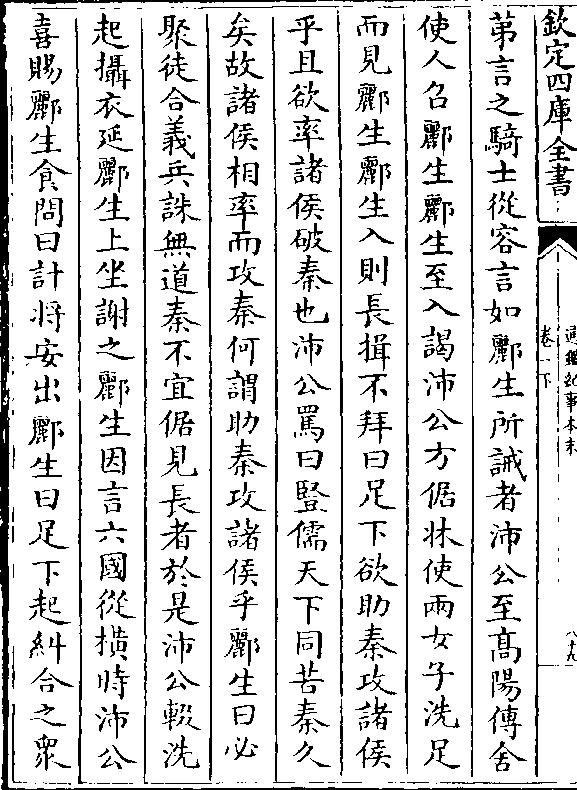 欽定四庫全書
通鑑紀事本末
卷一下
八十九
第言之騎士從容言如酈生所誡者沛公至髙陽傳舍
使人召酈生酈生至入謁沛公方倨牀使兩女子洗足
而見酈生酈生入則長揖不拜曰足下欲助秦攻諸侯
乎且欲率諸侯破秦也沛公罵曰豎儒天下同苦秦久
矣故諸侯相率而攻秦何謂助秦攻諸侯乎酈生曰必
聚徒合義兵誅無道秦不宜倨見長者於是沛公輟洗
起攝衣延酈生上坐謝之酈生因言六國從橫時沛公
喜賜酈生食問曰計將安出酈生曰足下起糾合之衆